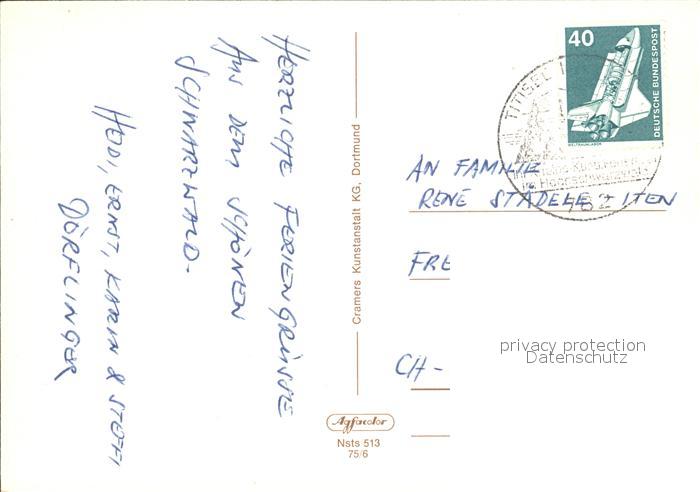 HERZLICHE FERIENGRÜSSE
AUS DEM SCHÖNEN
SCHWARZWALD.
HEIDI, ERNST, KARIN & STEFFI
DÖRFLINGER
Cramers Kunstanstalt KG. Dortmund
Agfacolor
Nsts 513
75/6
40
DEUTSCHE BUNDESPOST
WELTRAUMLABOR
TITISEE
782
AN FAMILIE
RENÉ STADELE - ITEN
FRE
CH -
privacy protection
Datenschutz